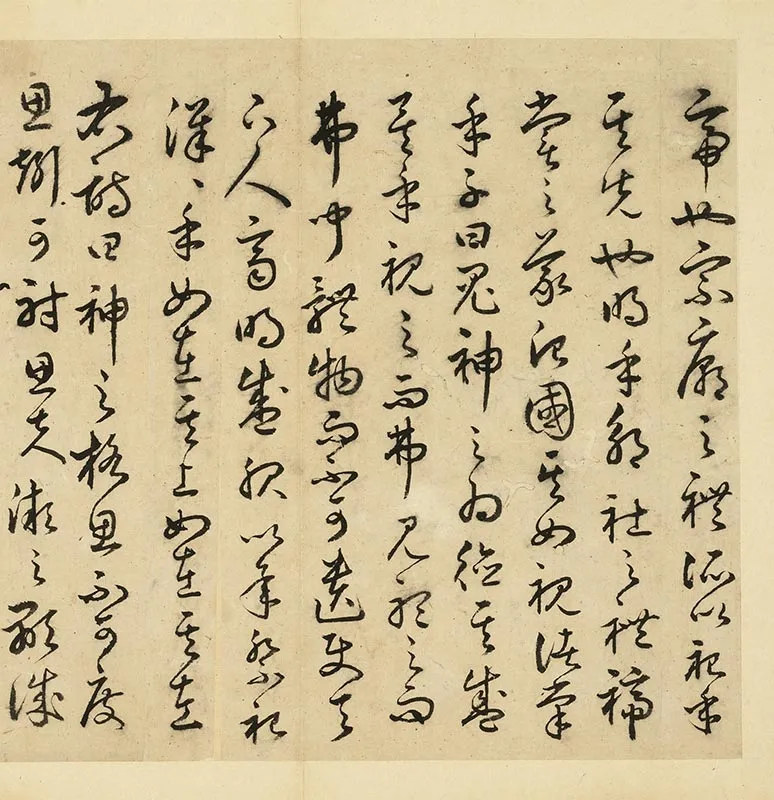 帝也宗廟之禮所以祀乎
其先也明乎郊社之禮禘
嘗之義治國其如視諸掌
乎子曰鬼神之為德其盛
矣乎視之而弗見聽之而
弗聞體物而不可遺使天
下人齊明盛服以承祭祀
洋〻乎如在其上如在其左
右詩曰神之格思不可度
思矧可射思夫微之顯誠